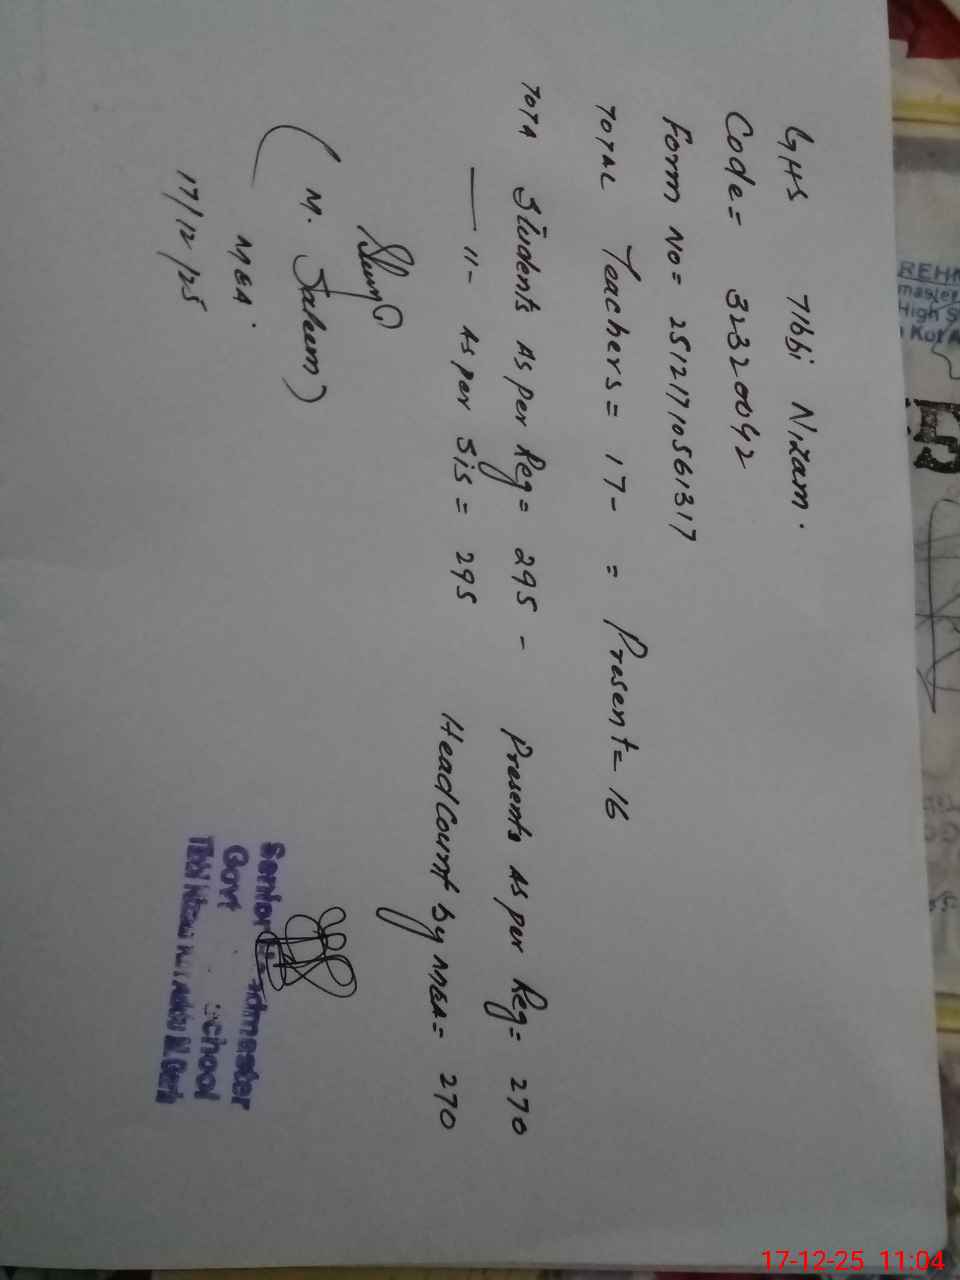 GHS Tibbi Nizam.
Code = 32320042
Form No = 25121710561317
TOTAL Teachers = 17 - = Present = 16
TOTA Students As per Reg = 295 - Presents As per Reg = 270
—— 11 - As per Sis = 295 Head Count by MEA = 270
(M. Saleem)
MEA.
17/12/25
Senior Headmaster
Govt School
Tibbi Nizam
REHM
master
High S
Kot A
17-12-25 11:04